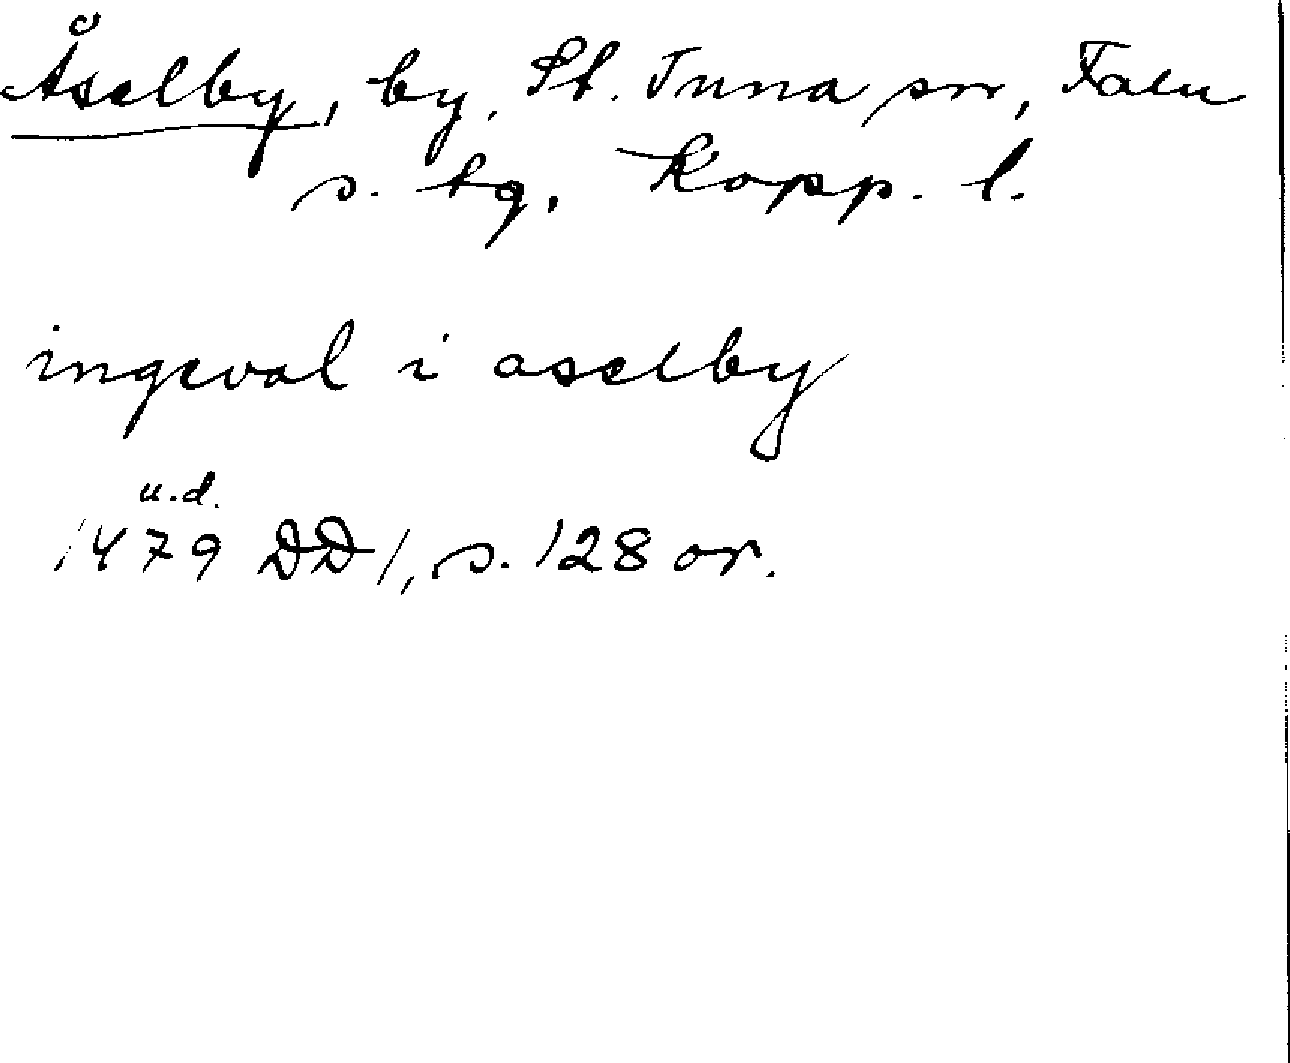 Åselby, by, St. Tuna sn, Falu
s. tg, Kopp. l.
ingeval i aselby
u.d.
1479 DD1, s. 128 or.